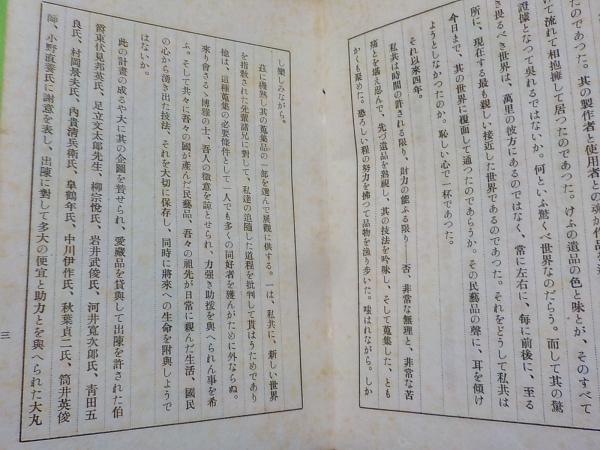 たのであつた。其の製作者と使用者との魂が作品を
けて流れて相抱擁して居つたのであつた。けふの遺品の色と味とが、そのすべて
證據となつて呉れるではないか。何といふ驚くべ世界なのだらう。而して其の驚
き畏るべき世界は、萬里の彼方にあるのではなく、常に左右に、毎に前後に、至る
所に、現在する最も親しい接近した世界であるのであつた。それをどうして私共は
今日まで、其の世界に覆面して通つたのであらうか。その民藝品の聲に、耳を傾け
ようとしなかつたのか。恥しい心で一杯であつた。
それ以來四年。
私共は時間の許される限り、財力の能ふる限り――否、非常な無理と、非常な苦
痛とを堪え忍んで、先づ遺品を熟視し、其の技法を吟味し、そして蒐集した、とも
かくも聚めた。恐ろしい程の努力を拂つて品物を漁り歩いた。嗤はれながら。しか
し樂しみながら。
茲に機熟し其の蒐集品の一部を選んで展觀に供する。一は、私共に、新しい世界
を指教された先輩諸兄に對して、私達の追隨した道程を批判して貰はうためであり
他は、這種蒐集の必要條件として一人でも多くの同好者を獲んがために外ならぬ。
來り會さるゝ博雅の士、吾人の微意を諒とせられ、力强き助援を與へられん事を希
ふ。そして共々に吾々の國が產んだ民藝品、吾々の祖先が日常に親んだ生活、國民
の心から湧き出た技法、それを大切に保存し、同時に將來への生命を附與しようで
はないか。
此の計畫の成るや大に其の企圖を賛せられ、愛藏品を貸與して出陳を許された伯
爵東伏見邦英氏、足立文太郎先生、柳宗悅氏、岩井武俊氏、河井寛次郎氏、靑田五
良氏、村岡景夫氏、內貴淸兵衛氏、皐鶴年氏、中川伊作氏、秋葉貞二氏、筒井英俊
師、小野直養氏に謝意を表し、出陳に對して多大の便宜と助力とを與へられた大丸
三